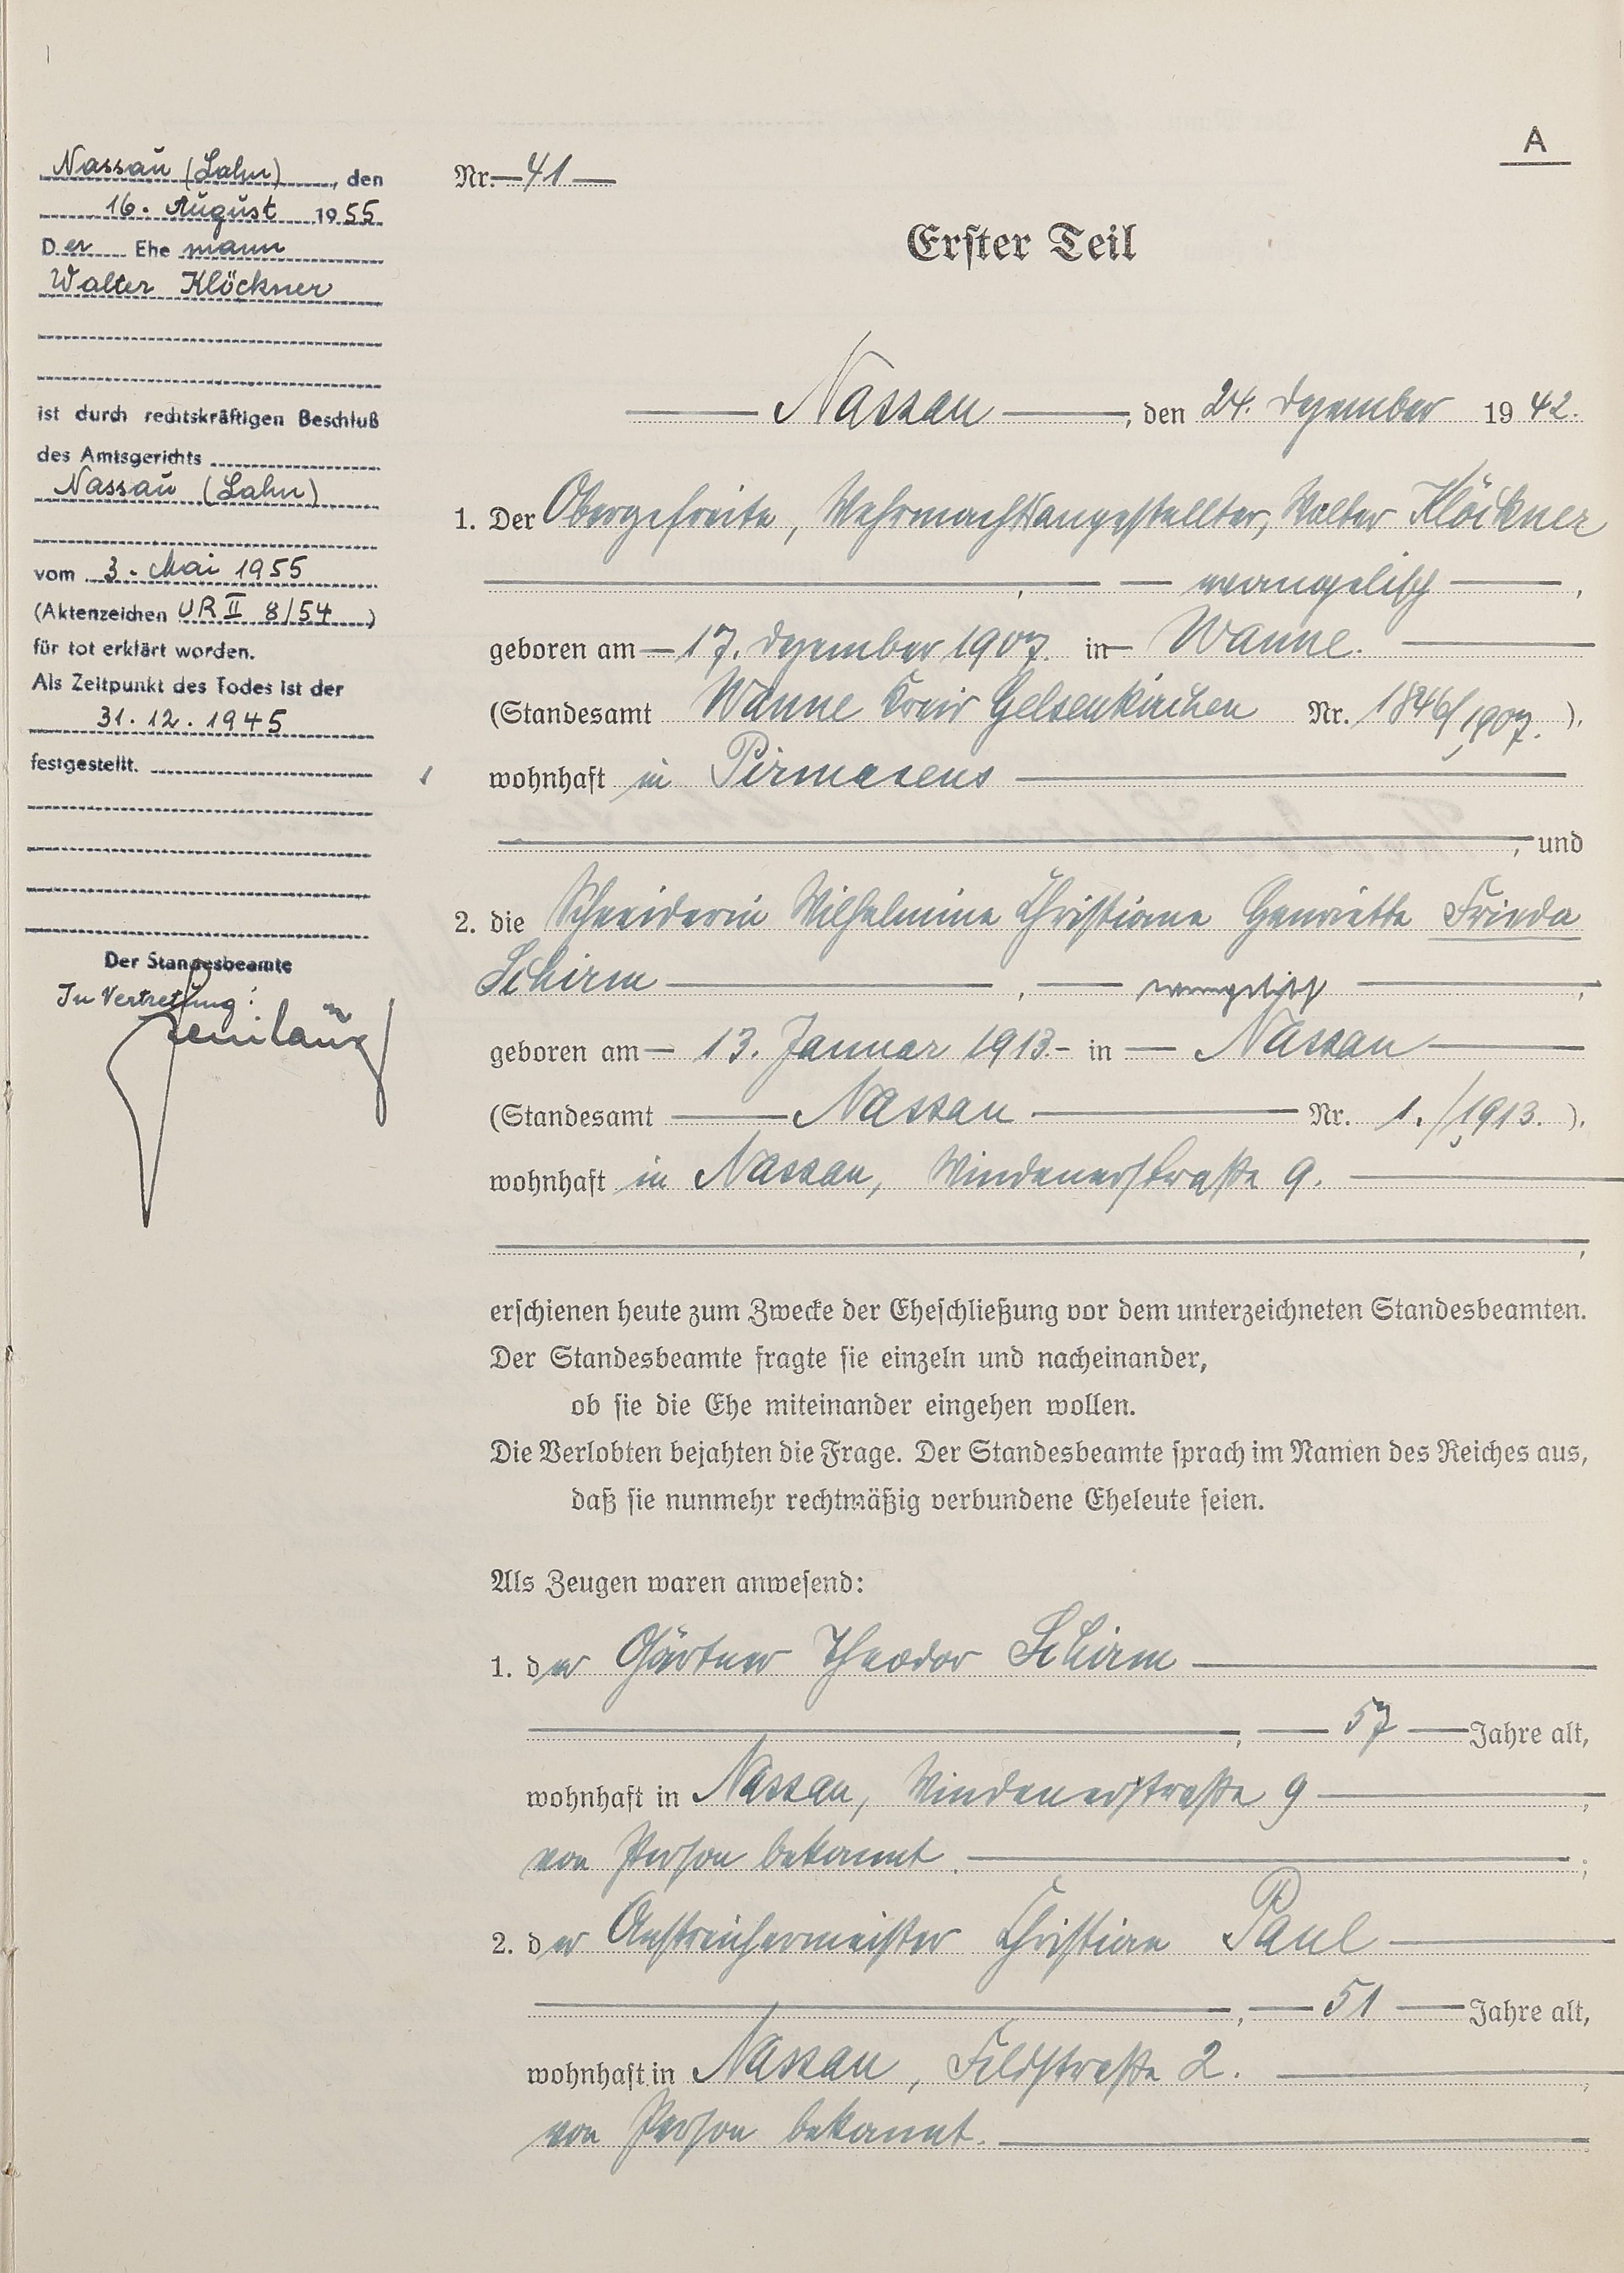 A
Nassau (Lahn), den
16. August 1955
Der Ehemann
Walter Klöckner
ist durch rechtskräftigen Beschluß
des Amtsgerichts
Nassau (Lahn)
vom 3. Mai 1955
(Aktenzeichen UR II 8/54)
für tot erklärt worden.
Als Zeitpunkt des Todes ist der
31.12.1945
festgestellt.
Der Standesbeamte
In Vertretung:
Nr. 41
Erster Teil
Nassau, den 24. Dezember 1942.
1. Der Obergefreite, Wehrmachtsangestellter, Walter Klöckner
, evangelisch,
geboren am 17. Dezember 1907. in Wanne.
(Standesamt Wanne Kreis Gelsenkirchen Nr. 1846/1907.),
wohnhaft in Pirmasens
, und
2. die Schneiderin Wilhelmine Christiane Henriette Frieda
Schirm, evangelisch,
geboren am 13. Januar 1913. in Nassau
(Standesamt Nassau Nr. 1./1913.),
wohnhaft in Nassau, Windenerstraße 9.
,
erschienen heute zum Zwecke der Eheschließung vor dem unterzeichneten Standesbeamten.
Der Standesbeamte fragte sie einzeln und nacheinander,
ob sie die Ehe miteinander eingehen wollen.
Die Verlobten bejahten die Frage. Der Standesbeamte sprach im Namen des Reiches aus,
daß sie nunmehr rechtmäßig verbundene Eheleute seien.
Als Zeugen waren anwesend:
1. der Gärtner Theodor Schirm
, 57 Jahre alt,
wohnhaft in Nassau, Windenerstraße 9,
von Person bekannt.;
2. der Anstreichermeister Christian Paul
, 51 Jahre alt,
wohnhaft in Nassau, Feldstraße 2.,
von Person bekannt.